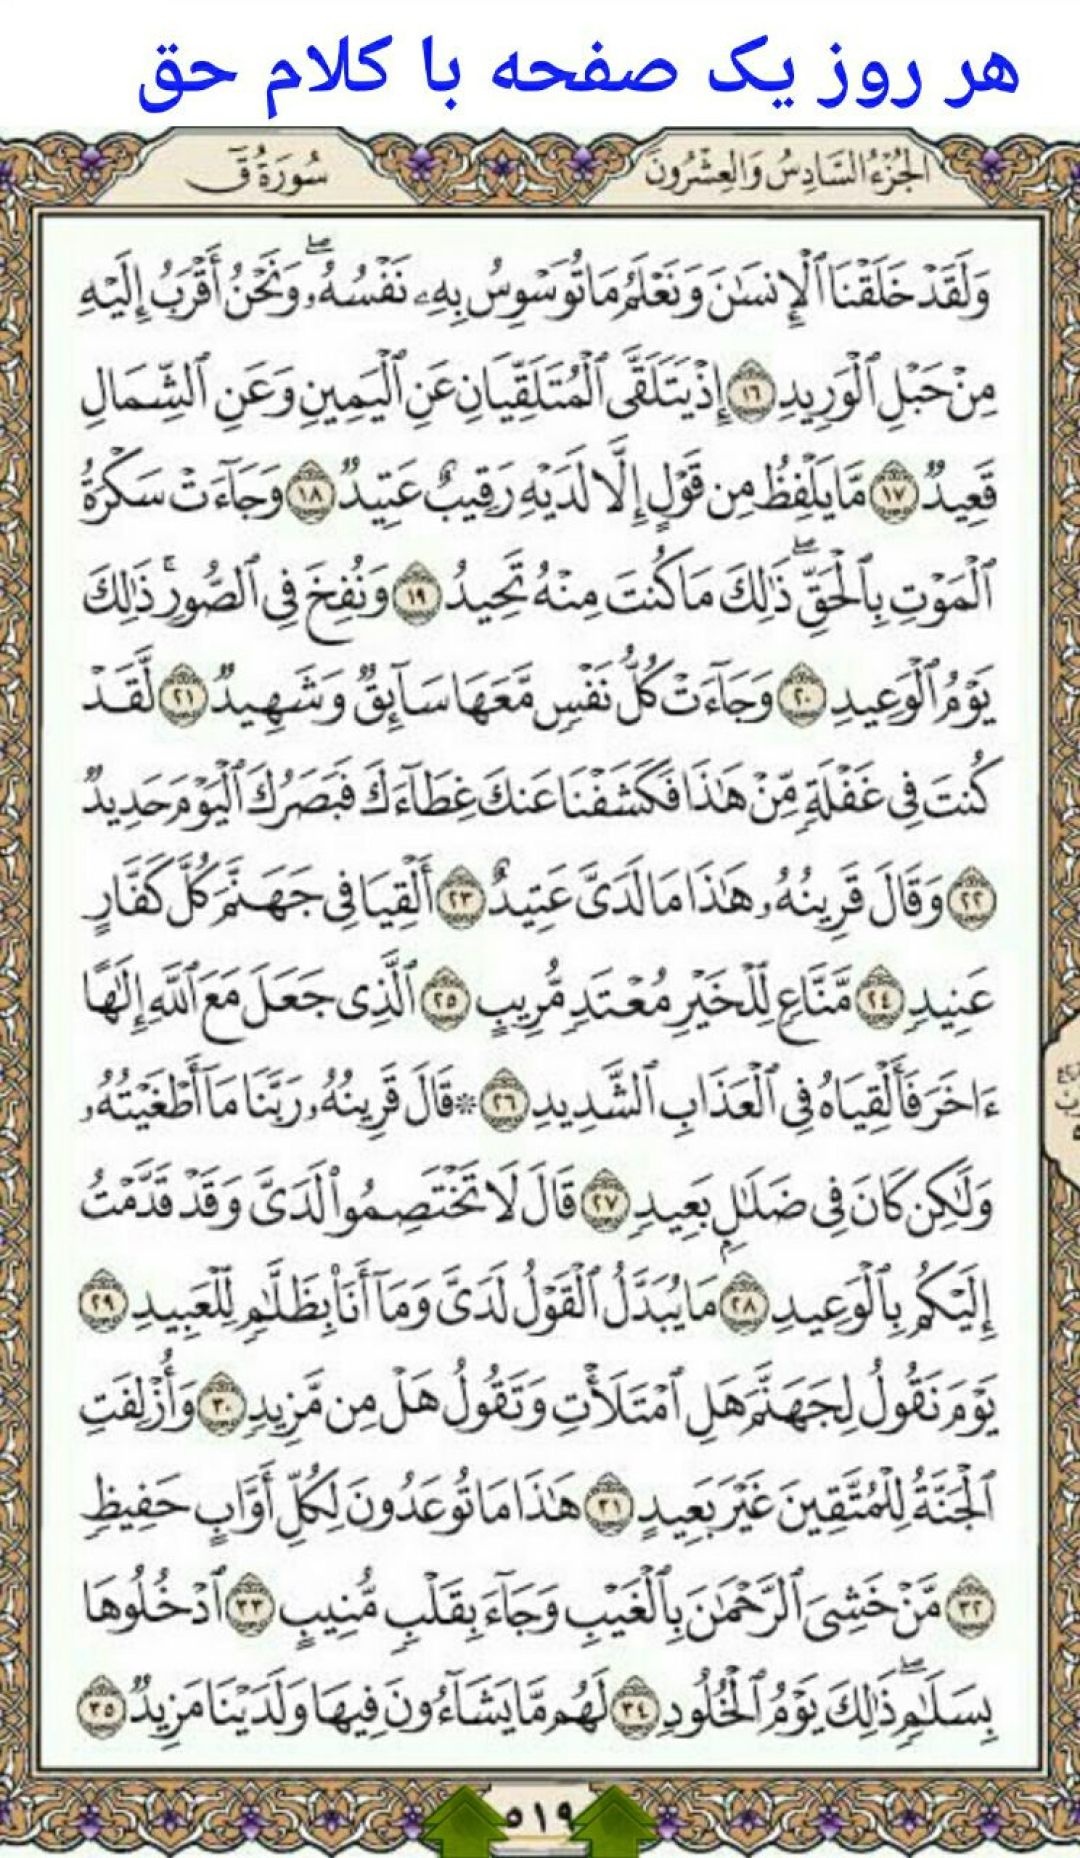 هر روز یک صفحه با کلام حق
الجُزْءُ السَّادِسُ وَالعِشْرُونَ
سُورَةُ قٓ
وَلَقَدْ خَلَقْنَا ٱلْإِنسَٰنَ وَنَعْلَمُ مَا تُوَسْوِسُ بِهِۦ نَفْسُهُۥ ۖ وَنَحْنُ أَقْرَبُ إِلَيْهِ
مِنْ حَبْلِ ٱلْوَرِيدِ ١٦ إِذْ يَتَلَقَّى ٱلْمُتَلَقِّيَانِ عَنِ ٱلْيَمِينِ وَعَنِ ٱلشِّمَالِ
قَعِيدٌ ١٧ مَّا يَلْفِظُ مِن قَوْلٍ إِلَّا لَدَيْهِ رَقِيبٌ عَتِيدٌ ١٨ وَجَآءَتْ سَكْرَةُ
ٱلْمَوْتِ بِٱلْحَقِّ ۖ ذَٰلِكَ مَا كُنتَ مِنْهُ تَحِيدُ ١٩ وَنُفِخَ فِى ٱلصُّورِ ۚ ذَٰلِكَ
يَوْمُ ٱلْوَعِيدِ ٢٠ وَجَآءَتْ كُلُّ نَفْسٍ مَّعَهَا سَآئِقٌ وَشَهِيدٌ ٢١ لَّقَدْ
كُنتَ فِى غَفْلَةٍ مِّنْ هَٰذَا فَكَشَفْنَا عَنكَ غِطَآءَكَ فَبَصَرُكَ ٱلْيَوْمَ حَدِيدٌ
٢٢ وَقَالَ قَرِينُهُۥ هَٰذَا مَا لَدَىَّ عَتِيدٌ ٢٣ أَلْقِيَا فِى جَهَنَّمَ كُلَّ كَفَّارٍ
عَنِيدٍ ٢٤ مَّنَّاعٍ لِّلْخَيْرِ مُعْتَدٍ مُّرِيبٍ ٢٥ ٱلَّذِى جَعَلَ مَعَ ٱللَّهِ إِلَٰهًا
ءَاخَرَ فَأَلْقِيَاهُ فِى ٱلْعَذَابِ ٱلشَّدِيدِ ٢٦ * قَالَ قَرِينُهُۥ رَبَّنَا مَآ أَطْغَيْتُهُۥ
وَلَٰكِن كَانَ فِى ضَلَٰلٍۭ بَعِيدٍ ٢٧ قَالَ لَا تَخْتَصِمُوا۟ لَدَىَّ وَقَدْ قَدَّمْتُ
إِلَيْكُم بِٱلْوَعِيدِ ٢٨ مَا يُبَدَّلُ ٱلْقَوْلُ لَدَىَّ وَمَآ أَنَا۠ بِظَلَّٰمٍ لِّلْعَبِيدِ ٢٩
يَوْمَ نَقُولُ لِجَهَنَّمَ هَلِ ٱمْتَلَأْتِ وَتَقُولُ هَلْ مِن مَّزِيدٍ ٣٠ وَأُزْلِفَتِ
ٱلْجَنَّةُ لِلْمُتَّقِينَ غَيْرَ بَعِيدٍ ٣١ هَٰذَا مَا تُوعَدُونَ لِكُلِّ أَوَّابٍ حَفِيظٍ
٣٢ مَّنْ خَشِىَ ٱلرَّحْمَٰنَ بِٱلْغَيْبِ وَجَآءَ بِقَلْبٍ مُّنِيبٍ ٣٣ ٱدْخُلُوهَا
بِسَلَٰمٍ ۖ ذَٰلِكَ يَوْمُ ٱلْخُلُودِ ٣٤ لَهُم مَّا يَشَآءُونَ فِيهَا وَلَدَيْنَا مَزِيدٌ ٣٥
٥١٩